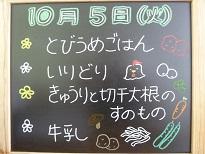 10月5日(火)
とびうめごはん
いりどり
きゅうりと切干大根の
すのもの
牛乳